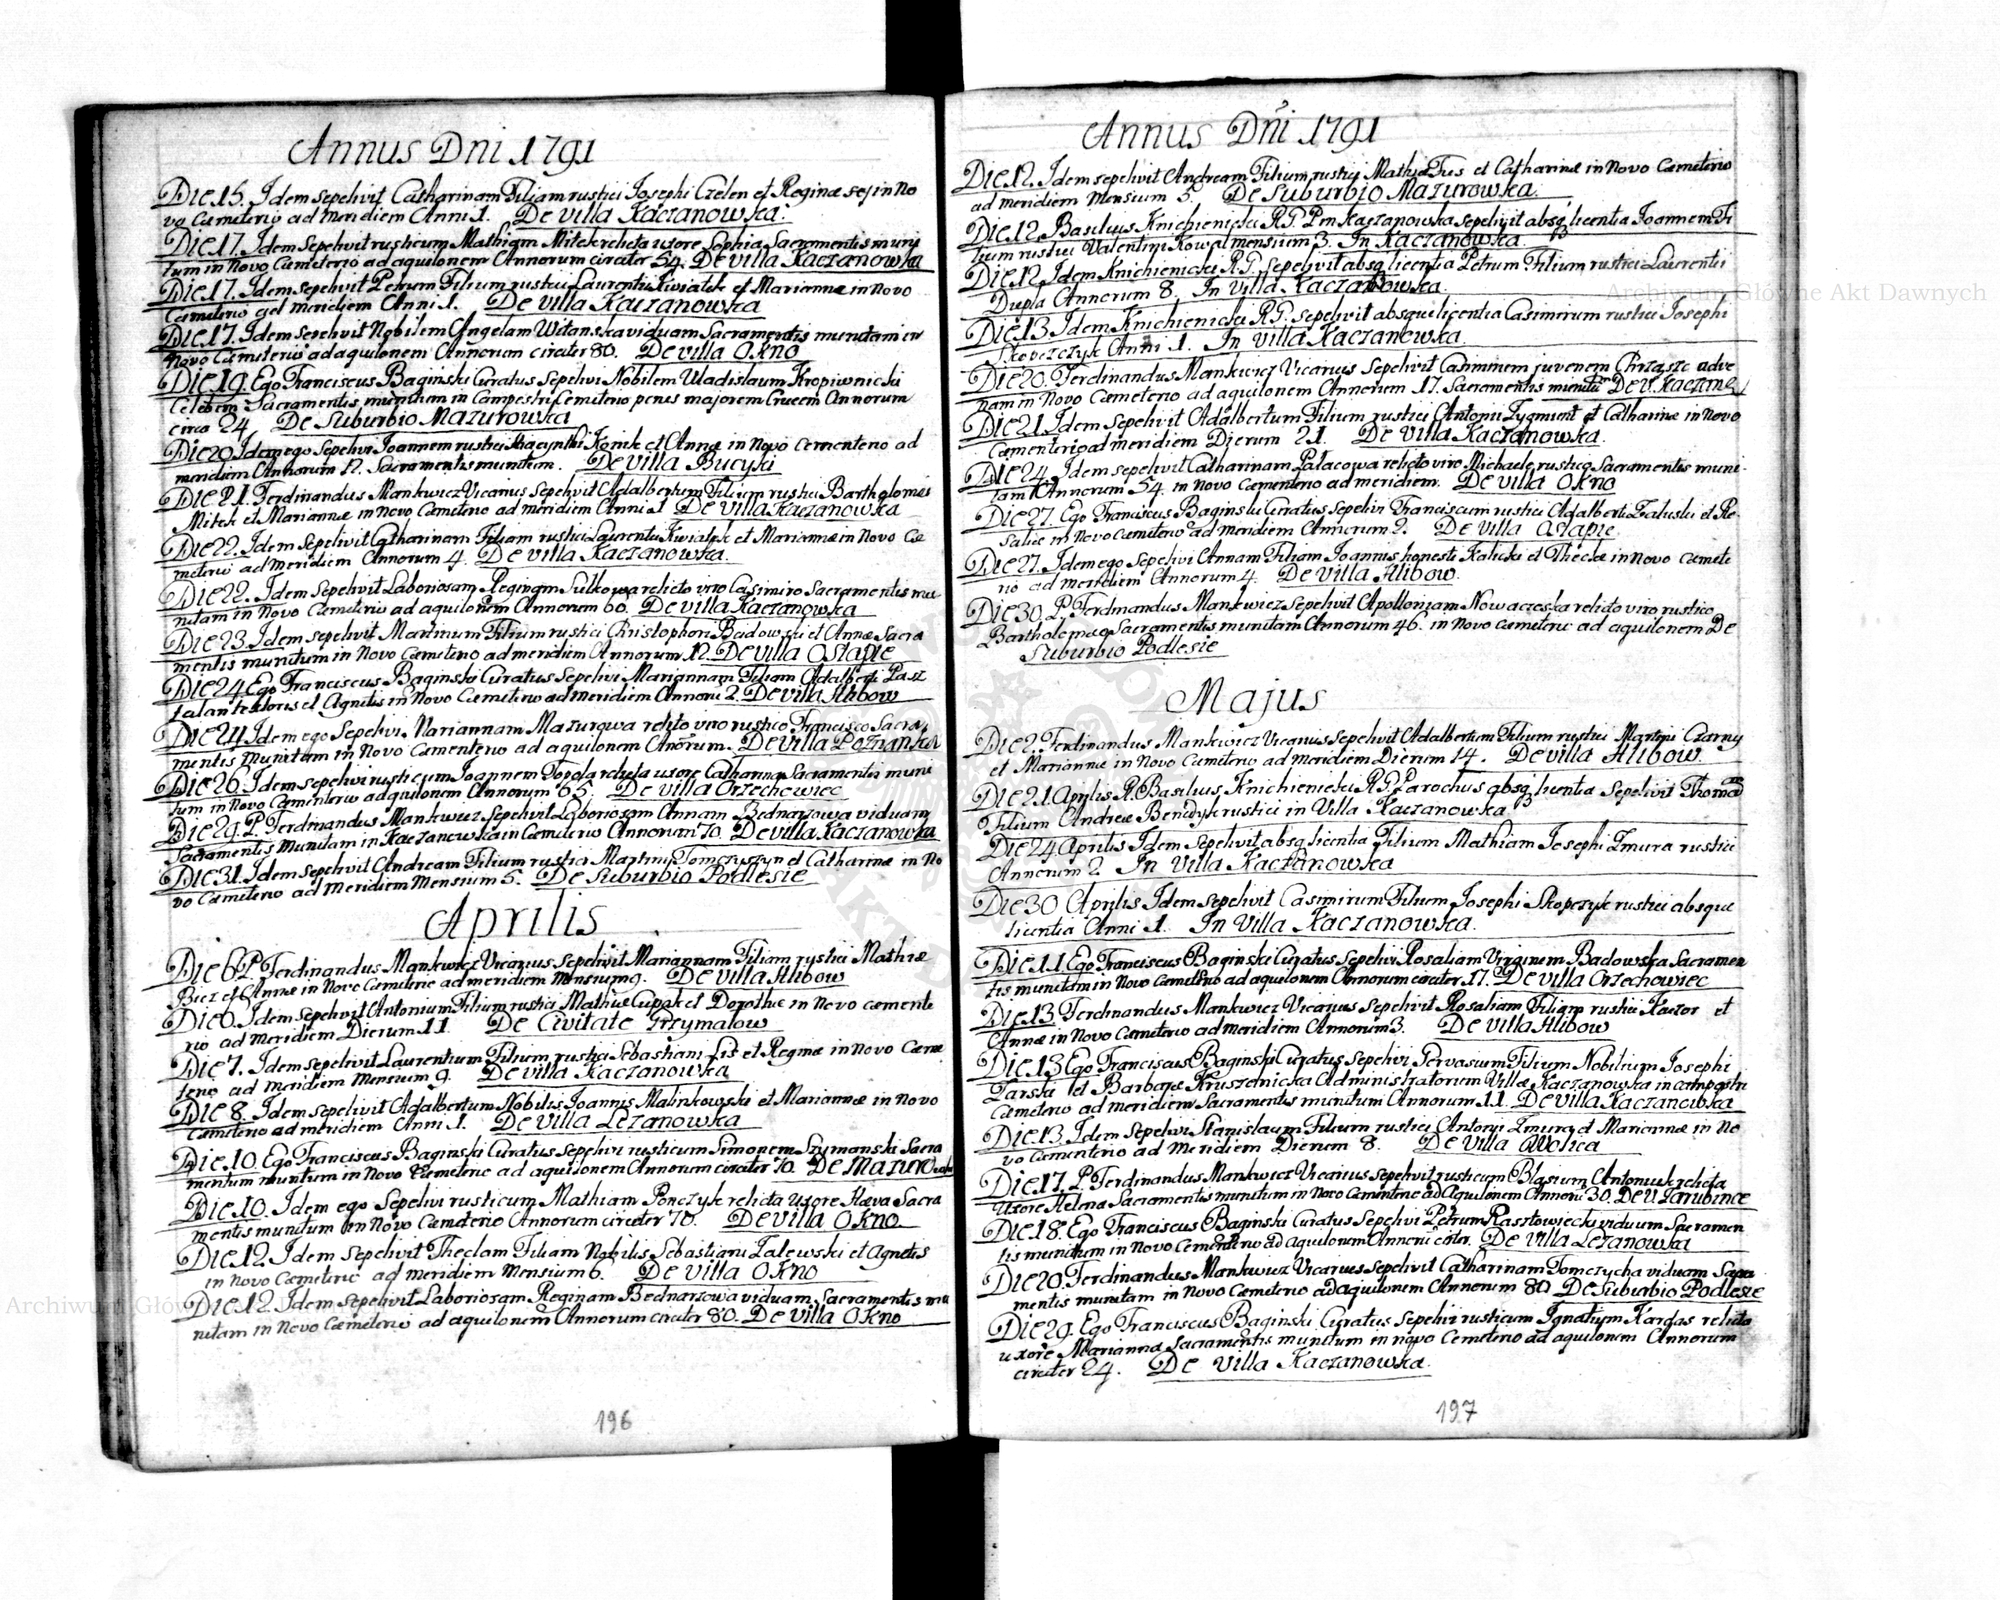 Annus Dni 1791
Die 15. Idem sepelivit Catharinam Filiam rustici Josephi Czelen et Reginæ sej in No
vo Cæmiterio ad meridiem Anni 1. De villa Kaczanowka.
Die 17. Idem Sepelivit rusticum Mathiam Mitek relicta uxore Sophia Sacramentis muni
tum in Novo Cæmeterio ad aquilonem Annorum circiter 54. De villa Kaczanowka
Die 17. Idem Sepelivit Petrum Filium rustici Laurentii Kwiatek et Mariannæ in Novo
Cæmeterio ad meridiem Anni 1. De villa Kaczanowka
Die 17. Idem Sepelivit Nobilem Angelam Witanska viduam Sacramentis munitam in
Novo Cæmiterio ad aquilonem Annorum circiter 80. De villa Okno
Die 19. Ego Franciscus Baginski Curatus Sepelivi Nobilem Uladislaum Kropiwnicki
Celebem Sacramentis munitum in Campestri Cemiterio penes majorem Crucem Annorum
circa 24. De Suburbio Mazurowka
Die 20 Idem ego Sepelivi Joannem rustici Hiacynthi Konik et Annæ in Novo Cementerio ad
meridiem Annorum 12. Sacramentis munitum. De villa Bucyki
Die 21. Ferdinandus Mankwicz Vicarius Sepelivit Adalbertum Filium rustici Bartholomei
Mitek et Mariannæ in Novo Cæmeterio ad meridiem Anni 1 De Villa Kaczanowka
Die 22. Idem Sepelivit Catharinam Filiam rustici Laurentii Kwiatek et Mariannæ in Novo Cæ
meterio ad Meridiem Annorum 4. De villa Kaczanowka.
Die 22. Idem Sepelivit Laboriosam Reginam Sulkowa relicto viro Casimiro Sacramentis mu
nitam in Novo Cæmeterio ad aquilonem Annorum 60. De villa Kaczanowka
Die 23. Idem sepelivit Martinum Filium rustici Christophori Badowski et Annæ Sacra
mentis munitum in Novo Cæmeterio ad meridiem Annorum 12. De villa Ostapie
Die 24 Ego Franciscus Baginski Curatus Sepelivi Mariannam Filiam Adalberti Pasz
et Agnetis in Novo Cæmeterio ad meridiem Annorū 2. De villa Hlibow
Die 24 Idem ego Sepelivi Mariannam Mazurowa relicto viro rustico Francisco Sacra
mentis munitam in Novo Cæmenterio ad aquilonem Annorum. De villa Poznanka
Die 26. Idem sepelivi rusticum Joannem Topola relicta uxore Catharina Sacramentis muni
tum in Novo Cæmenterio ad aquilonem Annorum 65. De villa Orzechowiec
Die 29. P. Ferdinandus Mankwicz Sepelivit Laboriosam Annam Bednarzowa viduam
Sacramentis munitam in Kaczanowka in Cæmiterio Annorum 70. De villa Kaczanowka
Die 31. Idem sepelivit Andream Filium rustici Martini Tomczyszyn et Catharinæ in No
vo Cæmiterio ad Meridiem Mensium 5. De Suburbio Podlesie
Aprilis
Die 6 P. Ferdinandus Mankwicz Vicarius Sepelivit Mariannam Filiam rustici Mathiæ
Biez et Annæ in Novo Cæmiterio ad meridiem Mensium 9. De villa Hlibow
Die 6. Idem Sepelivit Antonium Filium rustici Mathiæ Cupak et Dorotheæ in Novo cæmente
rio ad meridiem Dierum 11 De Civitate Grzymalow
Die 7. Idem sepelivit Laurentium Filium rustici Sebastiani Lis et Reginæ in Novo Cæme
terio ad meridiem Mensium 9. De villa Kaczanowka
Die 8. Idem Sepelivit Adalbertum Nobilis Joannis Malinkowski et Mariannæ in Novo
Cæmiterio ad meridiem Anni 1. De villa Lezanowka
Die 10. Ego Franciscus Baginski Curatus Sepelivi rusticum Simonem Szymanski Sacra
mentum munitum in Novo Cæmeterio ad aquilonem Annorum circiter 70. De Mazurowka
Die 10. Idem ego Sepelivi rusticum Mathiam Ponczyk relicta Uxore Hæva Sacra
mentis munitum in Novo Cæmeterio Annorum circiter 70. De Villa Okno.
Die 12. Idem Sepelivit Theclam Filiam Nobilis Sebastiani Zalewski et Agnetis
in Novo Cæmeterio ad meridiem Mensium 6. De Villa Okno
Die 12. Idem sepelivit Laboriosam Reginam Bednarzowa viduam Sacramentis mu
nitam in Novo Cæmeterio ad aquilonem Annorum circiter 80. De villa Okno
196
Annus Dni 1791
Die 12. Idem sepelivit Andream Filium rustici Mathiæ Fus et Catharinæ in Novo Cæmeterio
ad meridiem Mensium 3. De Suburbio Mazurowka.
Die 12. Basilius Knichienicki R.G. Pen Kaczanowka sepelivit absq licentia Joannem Fi
lium rustici Valentini Kowal mensium 3. In Kaczanowka
Die 12. Idem Knichienicki R.G. sepelivit absq licentia Petrum Filium rustici Laurentii
Dupla Annorum 8. In Villa Kaczanowka.
Die 13 Idem Knichienicki R.G. sepelivit absque licentia Casimirum rustici Josephi
Skopczyk Anni 1. In Villa Kaczanowka
Die 20. Ferdinandus Mankwicz Vicarius Sepelivit Casimirum juvenem Chrząszc adve
nam in Novo Cæmeterio ad aquilonem Annorum 17. Sacramentis munitū De V. Kaczane
Die 21. Idem Sepelivit Adalbertum Filium rustici Antonii Zygmunt et Catharinæ in Novo
Cæmenterio ad meridiem Dierum 21. De Villa Kaczanowka.
Die 24. Idem sepelivit Catharinam Palacowa relicto viro Michaele rustico Sacramentis muni-
tam Annorum 54. in Novo Cæmenterio ad meridiem. De villa Okno
Die 27. Ego Franciscus Baginski Curatus Sepelivi Franciscum rustici Adalberti Zaluski et Ro
saliæ in Novo Cæmeterio ad Meridiem Annorum 2. De Villa Ostapie.
Die 27. Idem ego Sepelivi Annam Filiam Joannis honesti Kalicki et Theclæ in Novo Cæmete
rio ad meridiem Annorum 4. De Villa Hlibow.
Die 30. P. Ferdinandus Mankwicz Sepelivit Apolloniam Nowaczeska relicto viro rustico
Bartholomæo Sacramentis munitam Annorum 46. in Novo cæmiterio ad aquilonem De
Suburbio Podlesie
Majus
Die 2. Ferdinandus Mankwicz Vicarius Sepelivit Adalbertum Filium rustici Martini Czarny
et Mariannæ in Novo Cæmiterio ad meridiem Dierum 14. De Villa Hlibow.
Die 21. Aprilis R. Basilius Knichienicki R.G. Parochus absq licentia Sepelivit Thomā
Filium Andreæ Bendyk rustici in Villa Kaczanowka
Die 24 Aprilis Idem Sepelivit absq licentia Filium Mathiam Josephi Zmura rustici
Annorum 2. In Villa Kaczanowka
Die 30 Aprilis Idem Sepelivit Casimirum Filium Josephi Skopczyk rustici absque
licentia Anni 1. In Villa Kaczanowka.
Die 11 Ego Franciscus Baginski Curatus Sepelivi Rosaliam Virginem Badowska Sacramen
tis munitam in Novo Cæmiterio ad aquilonem Annorum circiter 17. De Villa Orzechowiec
Die 13. Ferdinandus Mankwicz Vicarius Sepelivit Rosaliam Filiam rustici Kaczor et
Annæ in Novo Cæmiterio ad meridiem Annorum 3. De Villa Hlibow
Die 13 Ego Franciscus Baginski Curatus Sepelivi Gervasium Filium Nobilium Josephi
Zarski et Barbaræ Kruszelnicka Administratorum Villæ Kaczanowka in campestri
Cæmiterio ad meridiem Sacramentis munitum Annorum 11. De Villa Kaczanowka
Die 13. Idem Sepelivi Stanislaum Filium rustici Antonii Zmura et Mariannæ in No
vo Cæmenterio ad Meridiem Dierum 8. De Villa Wolica
Die 17. P. Ferdinandus Mankwicz Vicarius Sepelivit rusticum Blasium Antoniuk relicta
Uxore Helena Sacramentis munitum in Novo Cæmenterio ad Aquilonem Annorū 30. De V. Zarubince
Die 18. Ego Franciscus Baginski Curatus Sepelivi Petrum Rasztowiecki viduum Sacramen
tis munitum in Novo Cementerio ad aquilonem Annorū De Villa Lezanowka
Die 20. Ferdinandus Mankwicz Vicarius Sepelivit Catharinam Tomczycha viduam Sacra
mentis munitam in Novo Cæmeterio ad aquilonem Annorum 80. De Suburbio Podlesie
Die 29. Ego Franciscus Baginski Curatus Sepelivi rusticum Ignatium Kargas relicta
uxore Marianna Sacramentis munitum in novo Cemeterio ad aquilonem Annorum
circiter 24. De Villa Kaczanowka.
197
Archiwum Główne Akt Dawnych